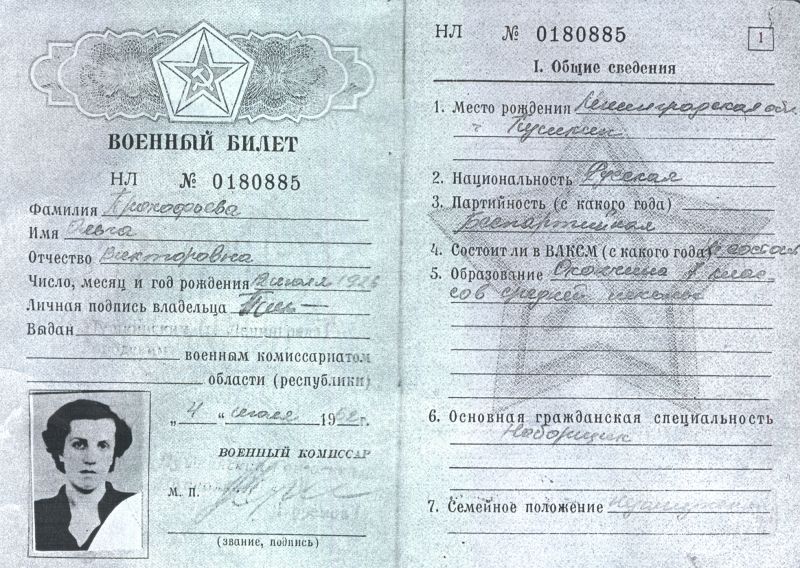 ВОЕННЫЙ БИЛЕТ
НЛ № 0180885
Фамилия Прокофьева
Имя Ольга
Отчество Викторовна
Число, месяц и год рождения 12 июля
Личная подпись владельца
Выдан
военным комиссариатом
области (республики)
„4“ июля 1962 г.
ВОЕННЫЙ КОМИССАР
М. П.
(звание, подпись)
НЛ № 0180885
1
I. Общие сведения
1. Место рождения Ленинградская обл.
г. Пушкин
2. Национальность Русская
3. Партийность (с какого года)
Беспартийная
4. Состоит ли в ВЛКСМ (с какого года)
5. Образование Окончила 8 клас-
сов средней школы
6. Основная гражданская специальность
Наборщик
7. Семейное положение